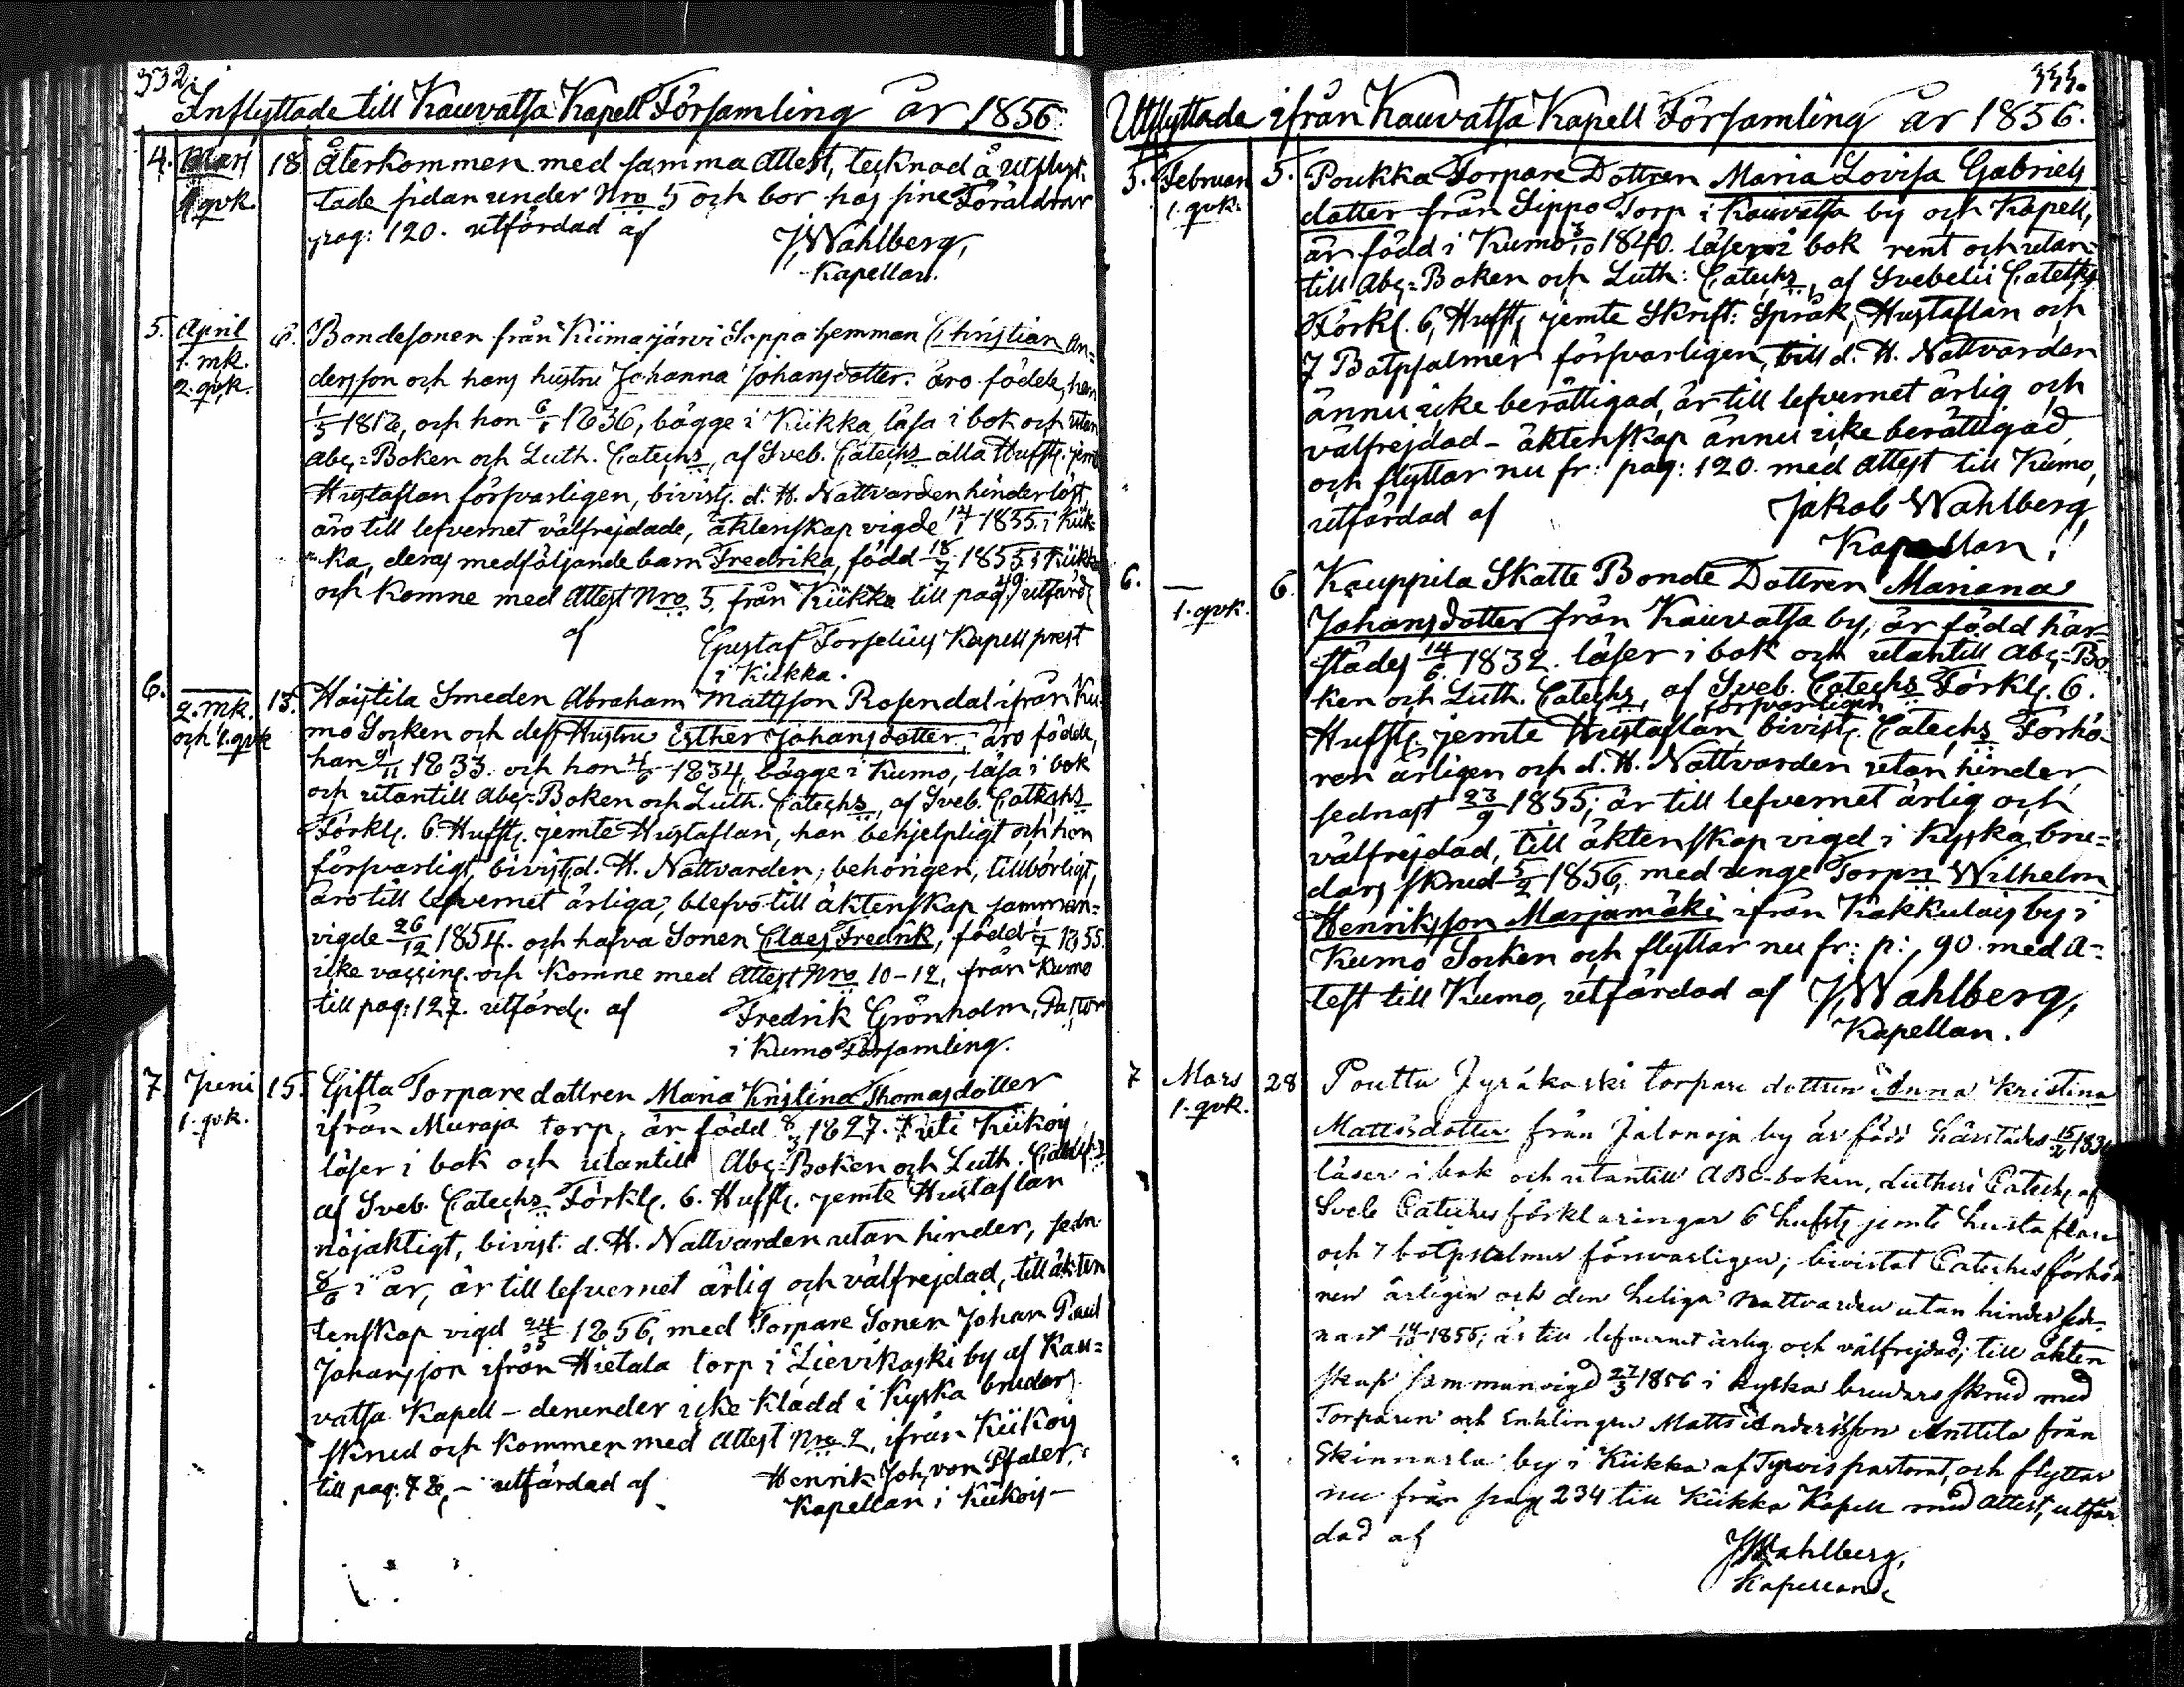 332.
Inflyttade till Kauvatsa Kapell Församling år 1856
4. Mars 18. Återkommen med samma Attest, tecknad å Utflyt-
1 qvk. tade sidan under Nro 5 och bor hos sine Föräldrar
pag: 120. utfärdad af J. Wahlberg,
Kapellan.
5. April 8. Bondesonen från Kiimajärvi Seppä hemman Christian An=
1. mk. dersson och hans hustru Johanna Johansdotter. äro födde, han
2. qvk.
1812, och hon 1836, bägge i Kiikka, läsa i bok och utan
Abc=Boken och Luth. Catechs, af Sveb. Catechs alla Hufst. jemte
Hustaflan försvarligen, bivist. d. H. Nattvarden hinderlöst,
äro till lefvernet välfrejdade, äktenskap vigde 1855 i Kiik=
ka, deras medföljande barn Fredrika, född 18/7 1855 i Kiikka
och komne med Attest Nro 3, från Kiikka till pag 49, utfärd.
af Gustaf Forselius Kapell prest
i Kiikka.
6. 2. mk. 15. Haistila Smeden Abraham Mattsson Rosendal ifrån Ku-
och 1. qvk mo Socken och dess Hustru Esther Johansdotter, äro födde,
han 9/11 1833. och hon 1834, bägge i Kumo, läsa i bok
och utantill Abc=Boken och Luth. Catechs, af Sveb. Catechs
Förkl. 6. Hufst. jemte Hustaflan, han behjelpligt och hon
försvarligt, bivist d. H. Nattvarden, behörigen, tillbörligt,
äro till lefvernet ärliga, blefvo till äktenskap samman=
vigde 26/12 1854. och hafva Sonen Claes Fredrik, född 1/7 1855.
icke vaccin. och komne med Attest Nro 10-12, från Kumo
till pag: 127. utfärd. af Fredrik Grönholm, Pastor
i Kumo Församling.
7. Juni 15. Gifta Torpare dottren Maria Kristina Thomasdotter
1. qvk. ifrån Muraja torp, är född 1827. i Kiikois
läser i bok och utantill Abc-Boken och Luth. Catechs
af Sveb. Catechs Förkl. 6. Hufst. jemte Hustaflan
nöjaktigt, bivist. d. H. Nattvarden utan hinder, sedn.
8/6 i år, är till lefvernet ärlig och välfrejdad, till äkten
tenskap vigd 24/5 1856, med Torpare Sonen Johan Paul
Johansson ifrån Hietala torp i Lievikoski by af Kau=
vatsa Kapell - denender icke klädd i kyska brudars
skrud och kommer med Attest Nro 2, ifrån Kiikois
till pag: 78, - utfärdad af Henrik Joh. von Pfaler,
Kapellan i Kiikois -
333.
Utflyttade ifrån Kauvatsa Kapell Församling år 1856.
5. Februari 5. Poukka Torpare Dottren Maria Lovisa Gabriels
1. qvk. dotter från Sippo Torp i Kauvatsa by och Kapell,
är född i Kumo 3/10 1840. läser i bok rent och utan=
till Abc=Boken och Luth: Catechs, af Svebelii Catechs
Förkl. 6, Hufst, jemte Skrift: Språk, Hustaflan och
7 Botpsalmer försvarligen, till d. H. Nattvarden
ännu icke berättigad, är till lefvernet ärlig och
välfrejdad - äktenskap ännu icke berättigad,
och flyttar nu fr: pag: 120. med Attest till Kumo,
utfärdad af Jakob Wahlberg,
Kapellan.
6. — 6. Kauppila Skatte Bonde Dottren Mariana
1. qvk. Johansdotter från Kauvatsa by, är född här=
städes 14/6 1832. läser i bok och utantill Abc=Bo
ken och Luth. Catechs, af Sveb. Catechs Förkl. 6.
försvarligen
Hufst. jemte Hustaflan bivist. Catechs Förhö-
ren årligen och d. H. Nattvarden utan hinder
sednast 23/9 1855; är till lefvernet ärlig och
välfrejdad, till äktenskap vigd i kyska bru=
dars skrud 5/2 1856, med unge Torpn Wilhelm
Henriksson Marjamäki ifrån Kakkulais by i
Kumo Socken och flyttar nu fr: p:, 90. med A=
test till Kumo, utfärdad af J. Wahlberg,
Kapellan.
7 Mars 28 Poutta Jyräkoski torpare dottren Anna Kristina
1. qvk. Mattsdotter från Jalonoja by är född härstädes 15/2
läser i bok och utantill ABC-boken, Lutheri Catechs af
Sveb Catechus förklaringar 6 hufst jemte hustaflan
och 7 botpsalmer försvarligen; bivistat Catechus förhö
ren årligen och den heliga Nattvarden utan hinder sed-
nast 14/10 1855; är till lefvernet ärlig och välfrejdad; till äkten
skap sammanvigd 27/3 1856 i kyska brudars skrud med
Torparen och Enklingen Matts Andersson Anttila från
Skinnarla by i Kiikka af Tyrvis pastorat, och flyttar
nu från pag 234 till Kiikka Kapell med attest, utfär
dad af J. Wahlberg,
Kapellan